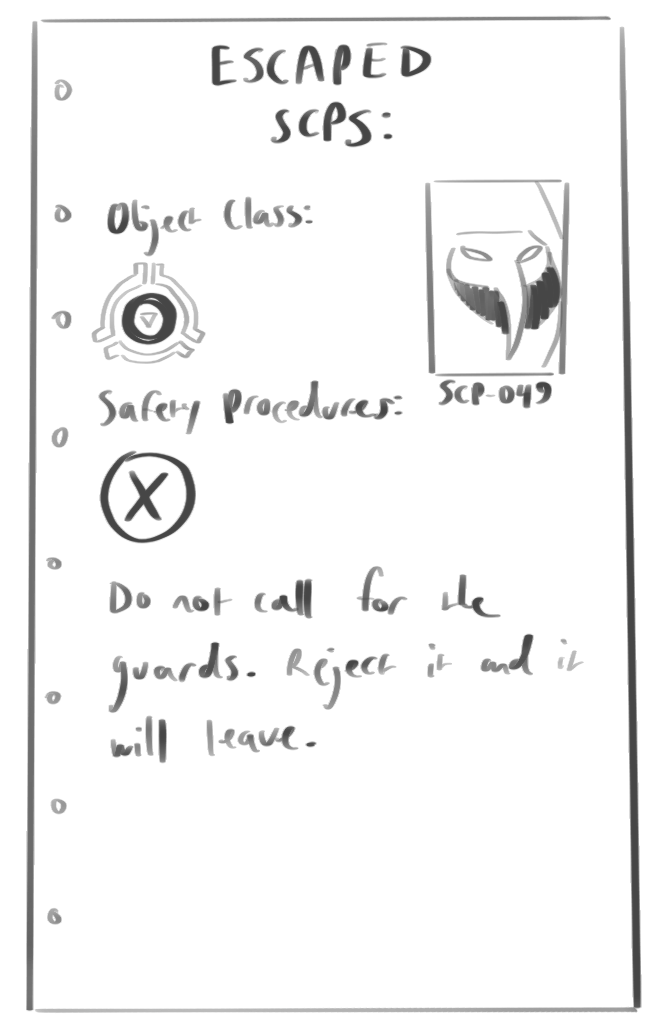 ESCAPED
SCPS:
Object Class:
SCP-049
Safety Procedures:
X
Do not call for the
guards. Reject it and it
will leave.